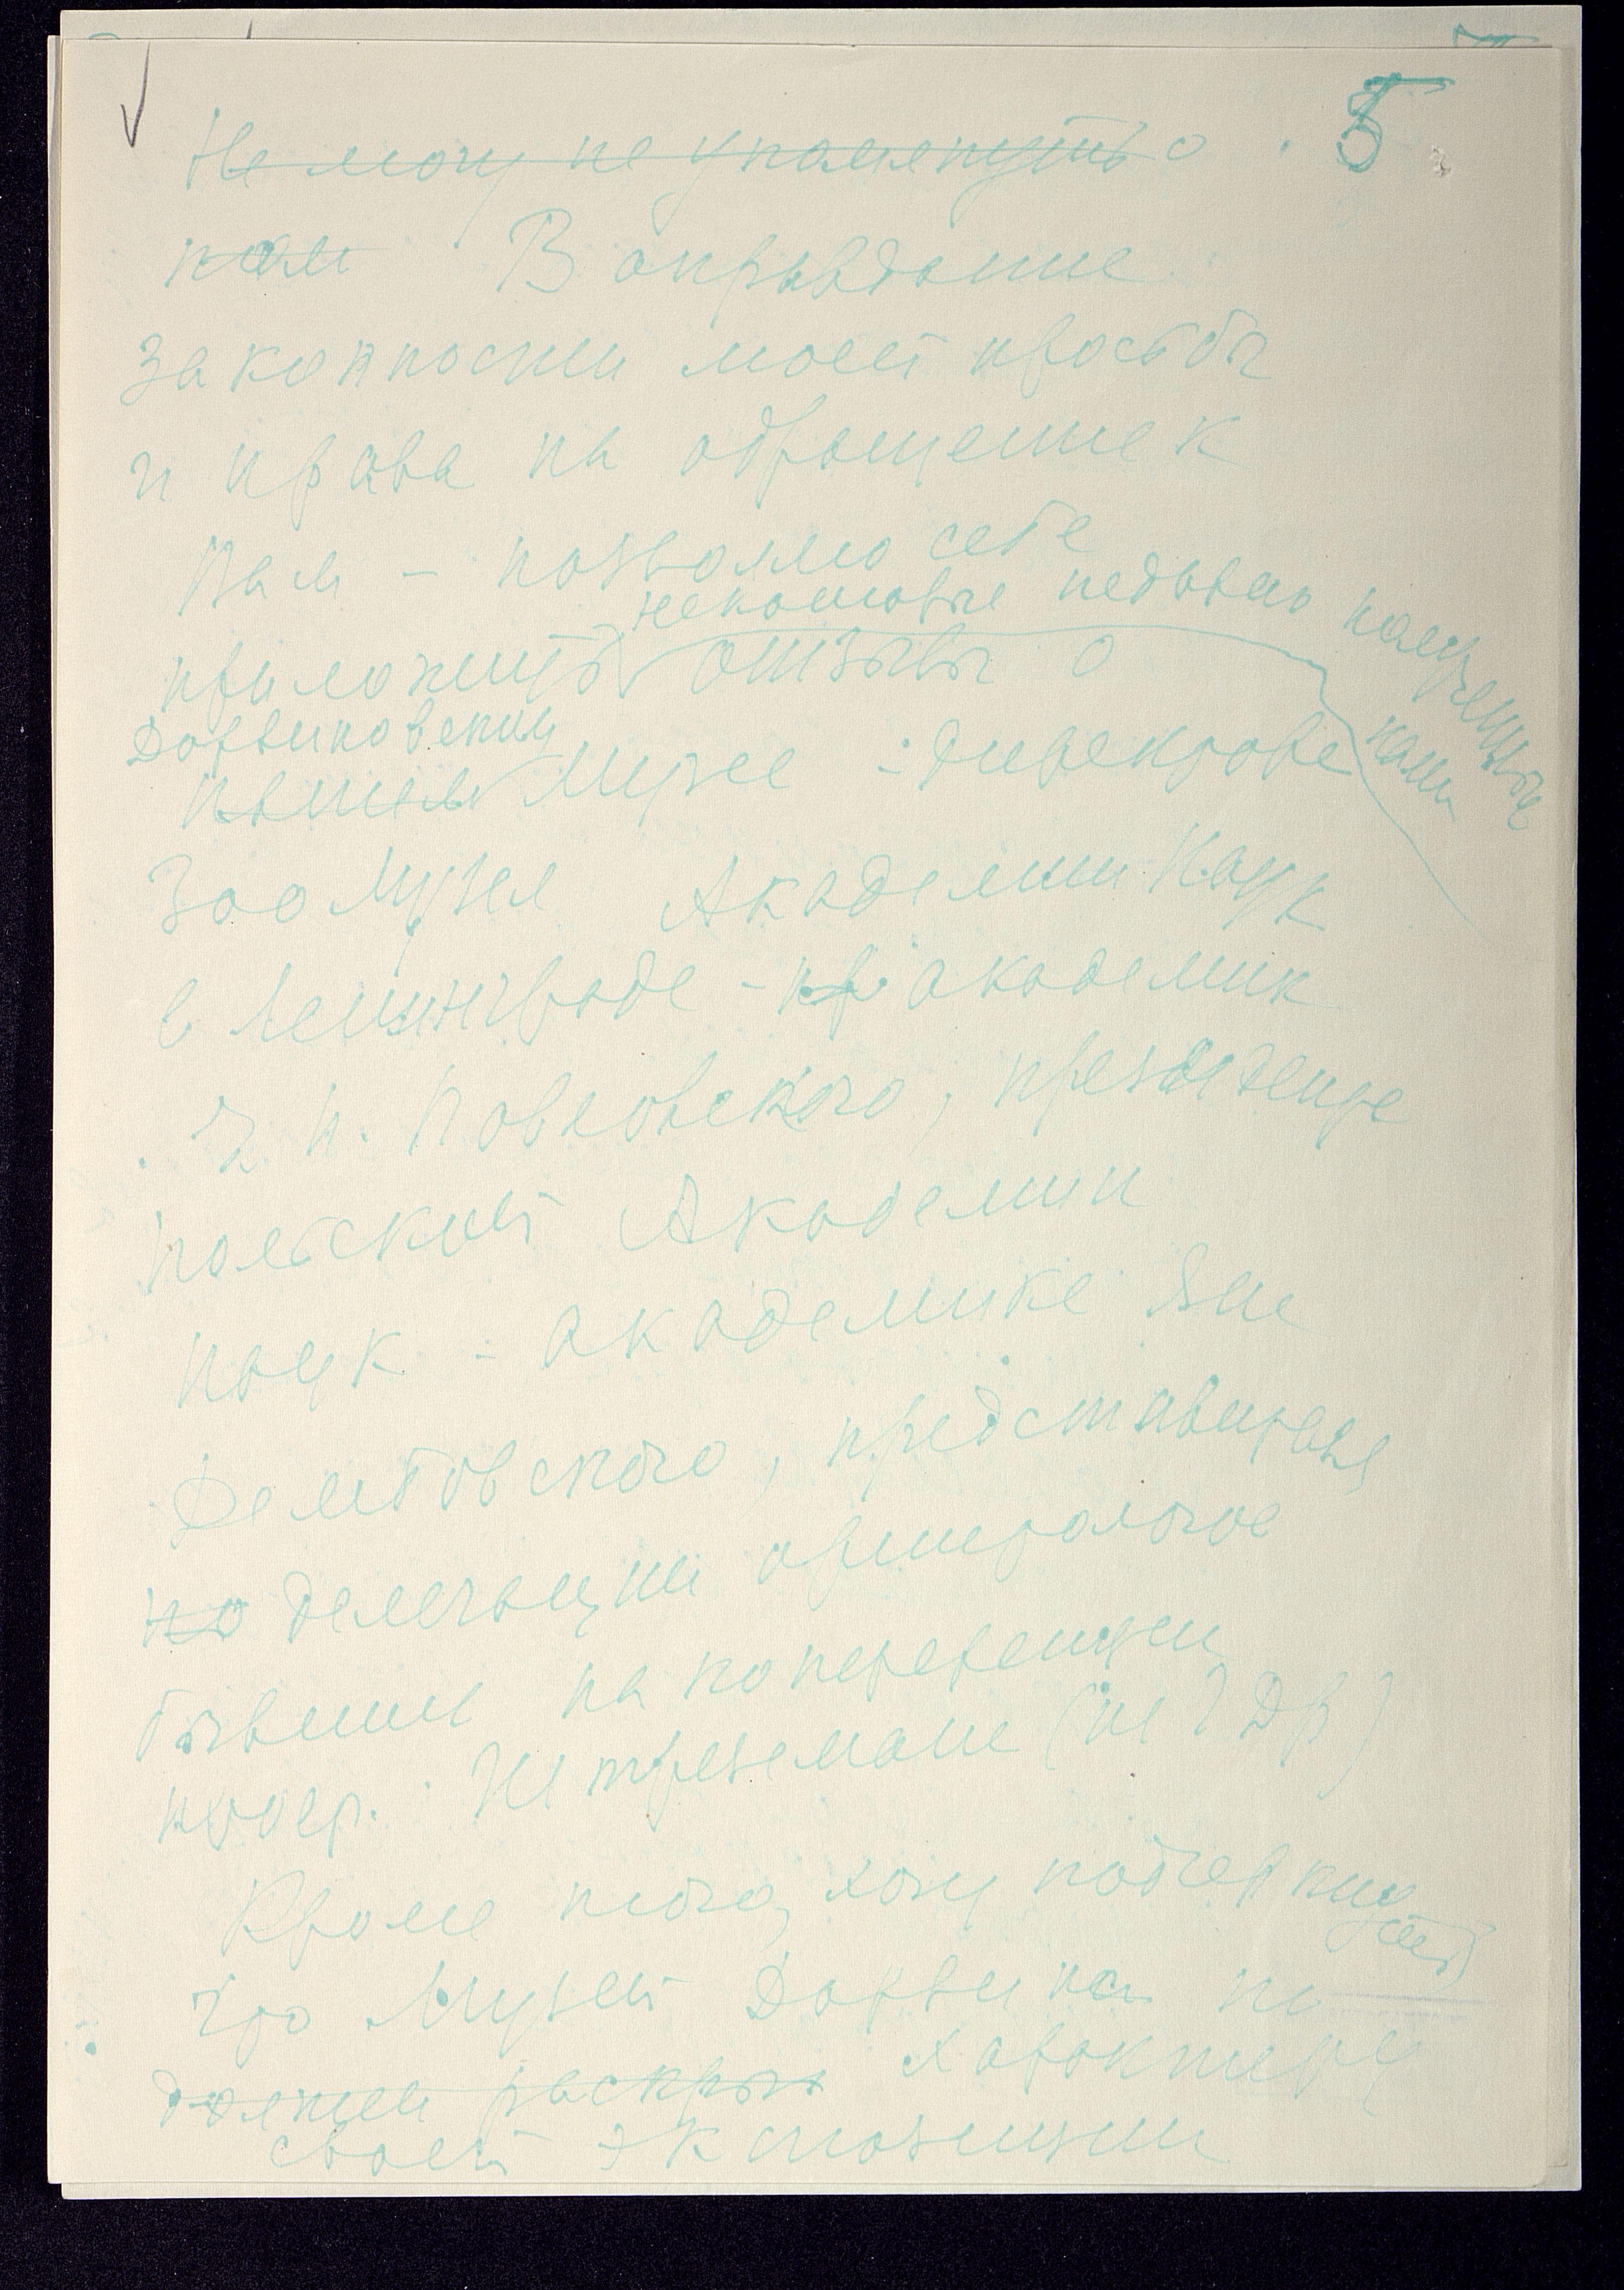 5
Не могу не упомянуть о
нам В оправдание
законности моей просьбы
и права на обращение к
Вам – позволяю себе
некоторые недавно полученные нами
приложить отзывы о
Дарвиновским
нашем Музее : директора
Зоо Музея Академии Наук
в Ленинграде - пр академик
Е. Н. Павловского, президента
польской Академии
наук - академика Яна
Дембовского, представителя
по делегации орнитологов
бывших на конференции
профер. Штреземане (из ГДР)
Кроме того, хочу подчеркнуть
что Музей Дарвина по
должен раскрыт характеру
своей экспозиции